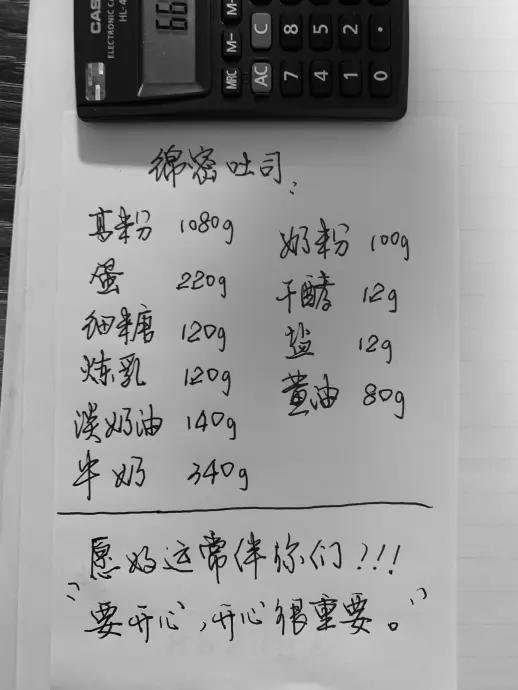 CASIO
ELECTRONIC CALC
HL-4
66
M-
C
8
5
2
.
MRC
AC
7
4
1
0
绵密吐司:
高粉 1080g
蛋 220g
细糖 120g
炼乳 120g
淡奶油 140g
牛奶 340g
奶粉 100g
干酵 12g
盐 12g
黄油 80g
愿好运常伴你们!!!!
"要开心,开心很重要。"